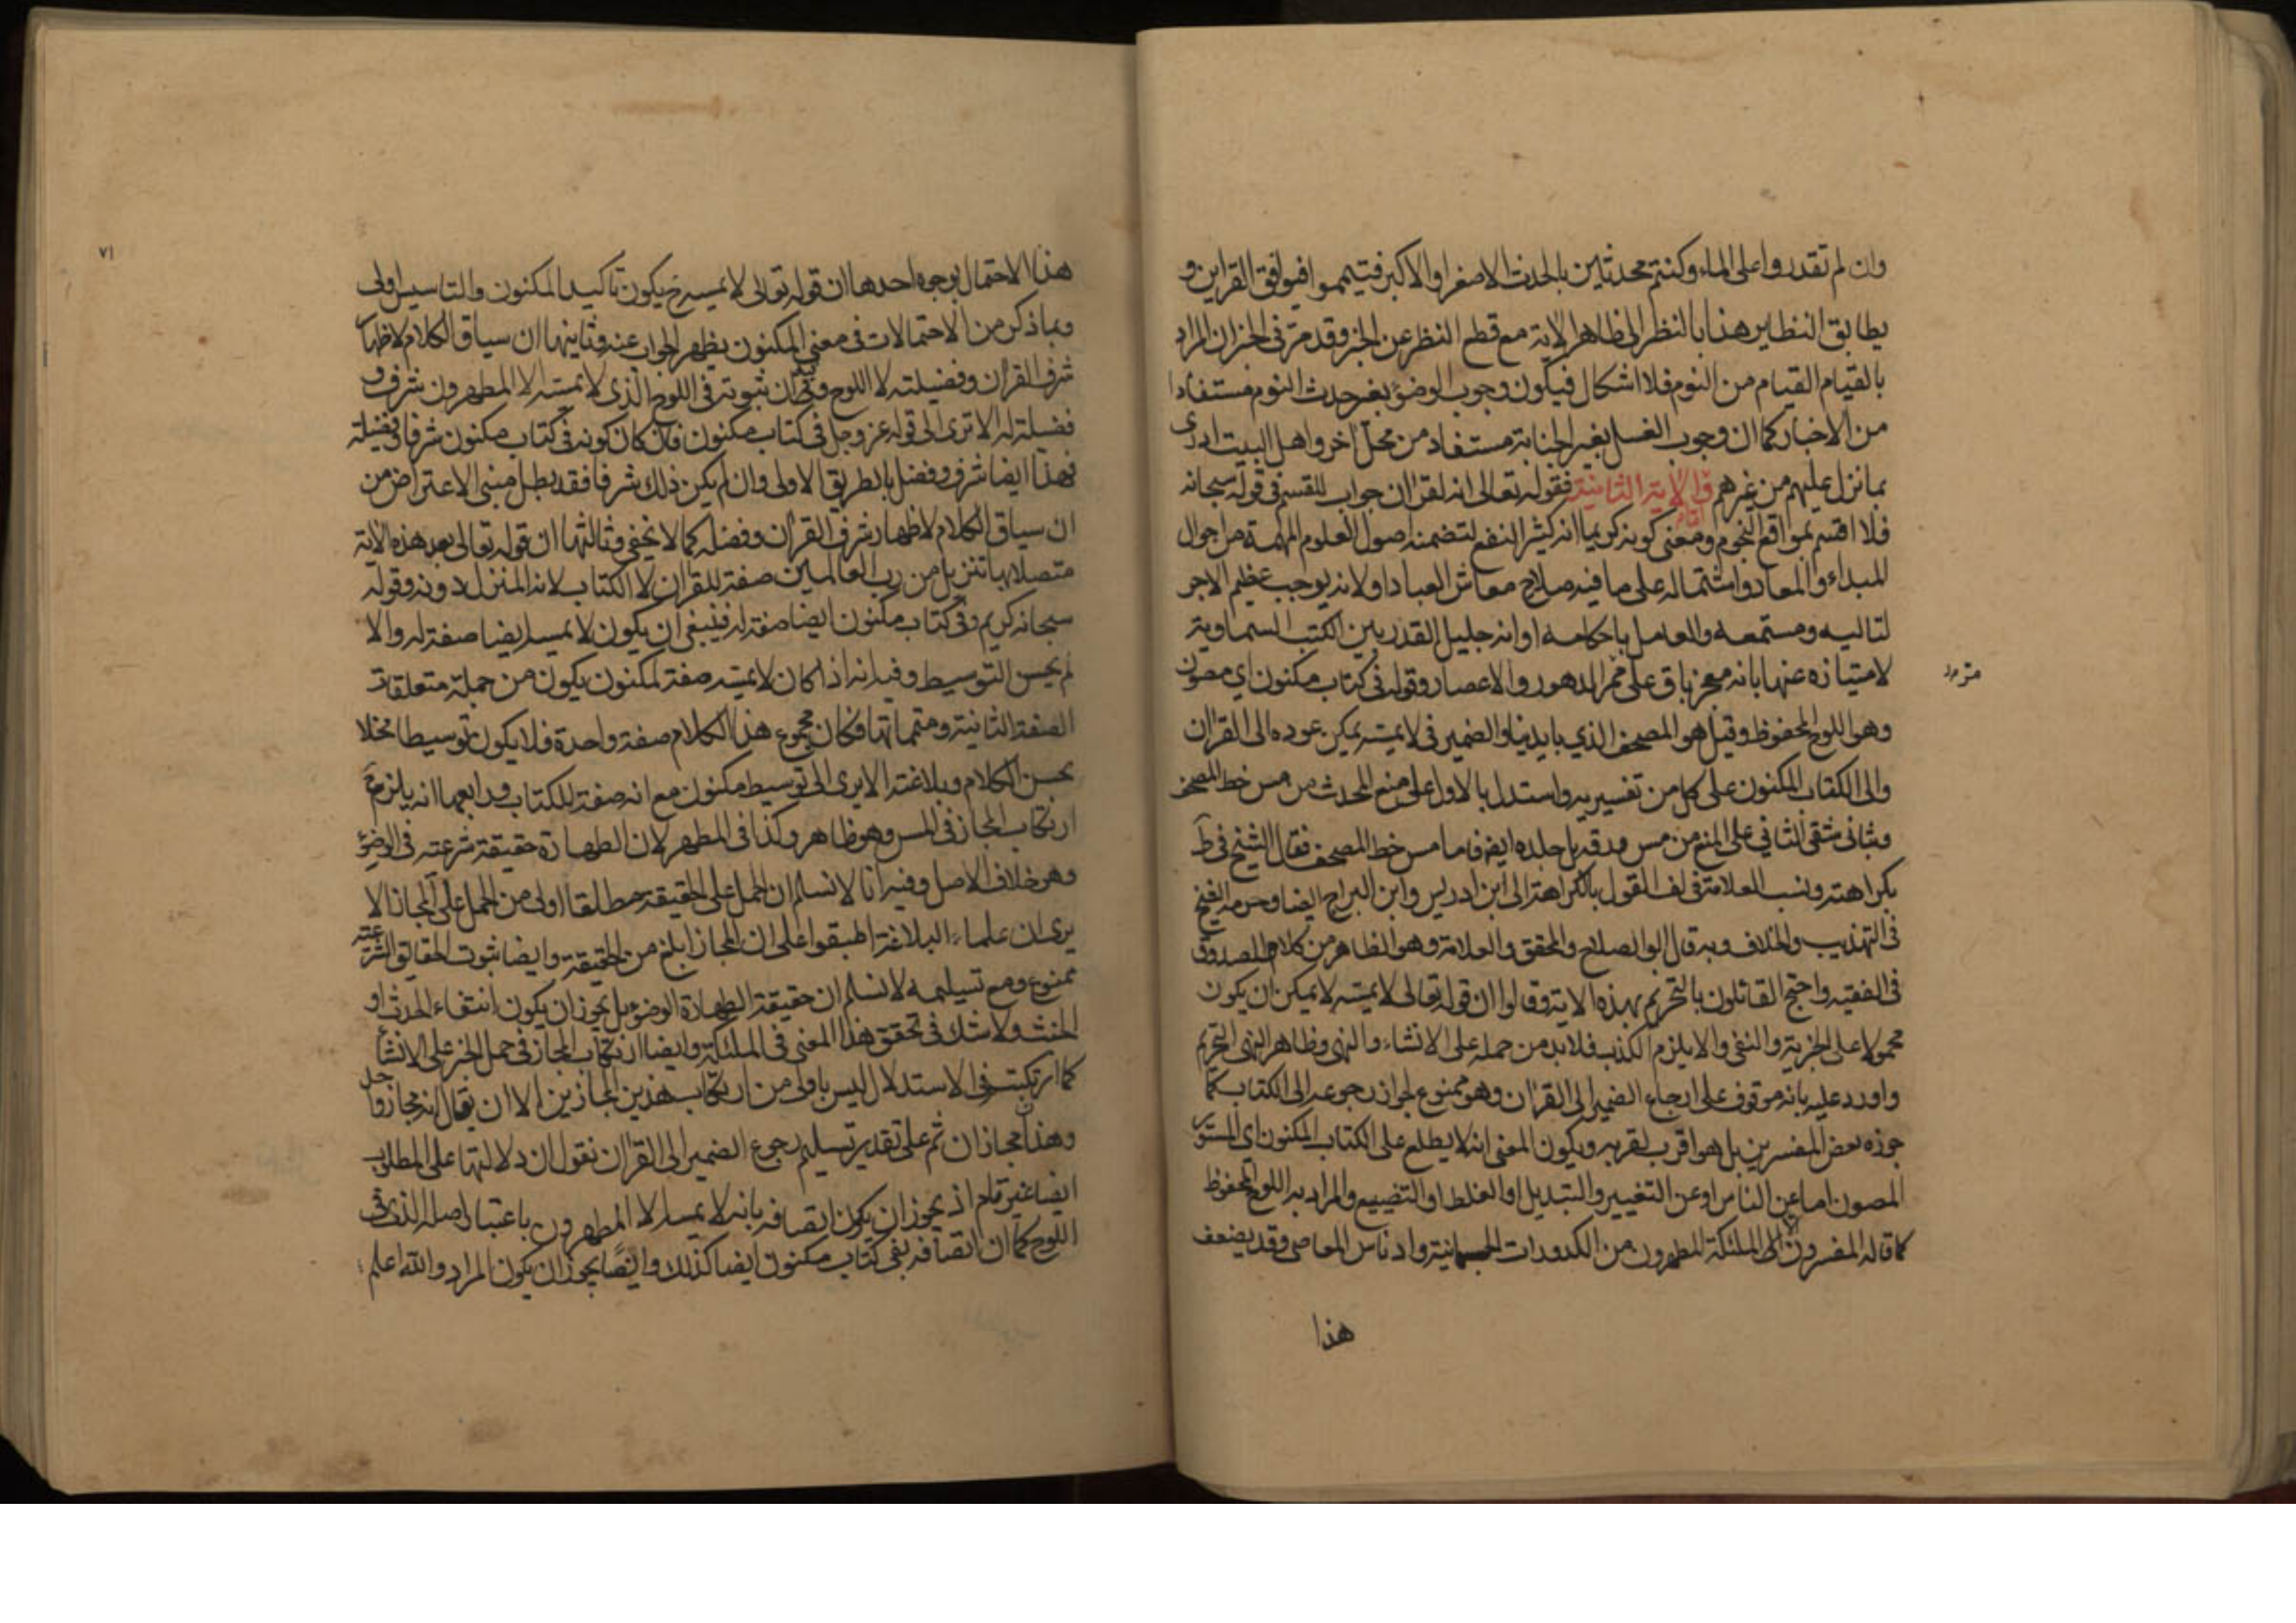 وان لم تقدروا على الماء وكنتم محدثين بالحدث الاصغر او الاكبر فتيمموا فيوافق القراين و
يطابق النظاير هذا بالنظر الى ظاهر الاية مع قطع النظر عن الخبر وقد مر في الخبر ان المراد
بالقيام القيام من النوم فلا اشكال فيكون وجوب الوضوء بغير حدث النوم مستفادا
من الاخبار كما ان وجوب الغسل بغير الجنابة مستفاد من محل آخر واهل البيت ادرى
بما نزل عليهم من غيرهم واما الاية الثانية فقوله تعالى انه لقران جواب للقسم في قوله سبحانه
فلا اقسم بمواقع النجوم ومعنى كونه كريما انه كثير النفع لتضمنه اصول العلوم المهمة من احوال
المبداء والمعاد واشتماله على ما فيه صلاح معاش العباد او لانه يوجب عظيم الاجر
لتاليه ومستمعه والعامل باحكامه او انه جليل القدر بين الكتب السماوية
لامتيازه عنها بانه معجز باق على ممر الدهور والاعصار وقوله في كتاب مكنون اي مصون
وهو اللوح المحفوظ وقيل هو المصحف الذي بايدينا والضمير في لا يمسه يمكن عوده الى القران
والى الكتاب المكنون على كل من تفسيريه واستدل بالاول على منع المحدث من مس خط المصحف
وبثاني شقي الثاني على المنع من مس ورقه بل جلده ايضا فاما مس خط المصحف فقال الشيخ في ط
بكراهته ونسب العلامة في لف القول بالكراهة الى ابن ادريس وابن البراج ايضا وحرمه الشيخ
في التهذيب والخلاف وبه قال ابو الصلاح والمحقق والعلامة وهو الظاهر من كلام الصدوق
في الفقيه واحتج القائلون بالتحريم بهذه الاية وقالوا ان قوله تعالى لا يمسه لا يمكن ان يكون
محمولا على الخبرية والنفي والا يلزم الكذب فلا بد من حمله على الانشاء والنهي وظاهر النهي التحريم
واورد عليه بانه موقوف على ارجاع الضمير الى القران وهو ممنوع لجواز رجوعه الى الكتاب كما
جوزه بعض المفسرين بل هو اقرب لقربه ويكون المعنى انه لا يطلع على الكتاب المكنون اي المستور
المصون اما عن الناس او عن التغيير والتبديل او الغلط او التضييع والمراد به اللوح المحفوظ
كما قاله المفسرون الا الملئكة المطهرون من الكدورات الجسمانية وادناس المعاصي وقد يضعف
هذا
٧١
هذا الاحتمال بوجوه احدها ان قوله تعالى لا يمسه ح يكون تاكيد المكنون والتاسيس اولى
وبما ذكر من الاحتمالات في معنى المكنون يظهر الجواب عنه وثانيها ان سياق الكلام لاظهار
شرف القرآن وفضيلته لا اللوح وفيه ان ثبوته في اللوح الذي لا يمسه الا المطهرون شرف و
فضيلة له الا ترى الى قوله عز وجل في كتاب مكنون فان كان كونه في كتاب مكنون شرفا وفضيلة
فهذا ايضا شرف وفضل بالطريق الاولى وان لم يكن ذلك شرفا فقد بطل مبنى الاعتراض من
ان سياق الكلام لاظهار شرف القرآن وفضله كما لا يخفى وثالثها ان قوله تعالى بعد هذه الاية
متصلا بها تنزيل من رب العالمين صفة للقرآن لا الكتاب لانه المنزل دونه وقوله
سبحانه كريم وفي كتاب مكنون ايضا صفة له فينبغي ان يكون لا يمسه ايضا صفة له والا
لم يحسن التوسيط وفيه انه اذا كان لا يمسه صفة لمكنون يكون من جملة متعلقات
الصفة الثانية ومتمماتها فكان مجموع هذا الكلام صفة واحدة فلا يكون توسيطا مخلا
بحسن الكلام وبلاغته الا يرى الى توسيط مكنون مع انه صفة للكتاب ورابعها انه يلزم ح
ارتكاب المجاز في المس وهو ظاهر وكذا في المطهر لان الطهارة حقيقة شرعية في الوضوء
وهو خلاف الاصل وفيه انا لا نسلم ان الحمل على الحقيقة مطلقا اولى من الحمل على المجاز الا
يرى ان علماء البلاغة اطبقوا على ان المجاز ابلغ من الحقيقة وايضا ثبوت الحقايق الشرعية
ممنوع ومع تسليمه لا نسلم ان حقيقة الطهارة الوضوء بل يجوز ان يكون انتفاء الحدث او
الخبث ولا شك في تحقق هذا المعنى في الملئكة وايضا ارتكاب المجاز في حمل الخبر على الانشاء
كما ارتكبتم في الاستدلال ليس باولى من ارتكاب هذين المجازين الا ان يقال انه مجاز واحد
وهذان مجازان ثم على تقدير تسليم رجوع الضمير الى القران نقول ان دلالتها على المطلوب
ايضا غير تام اذ يجوز ان يكون اتصافه بانه لا يمسه الا المطهرون باعتبار اصله الذي في
اللوح كما ان اتصافه بفي كتاب مكنون ايضا كذلك وايضا يجوز ان يكون المراد والله اعلم